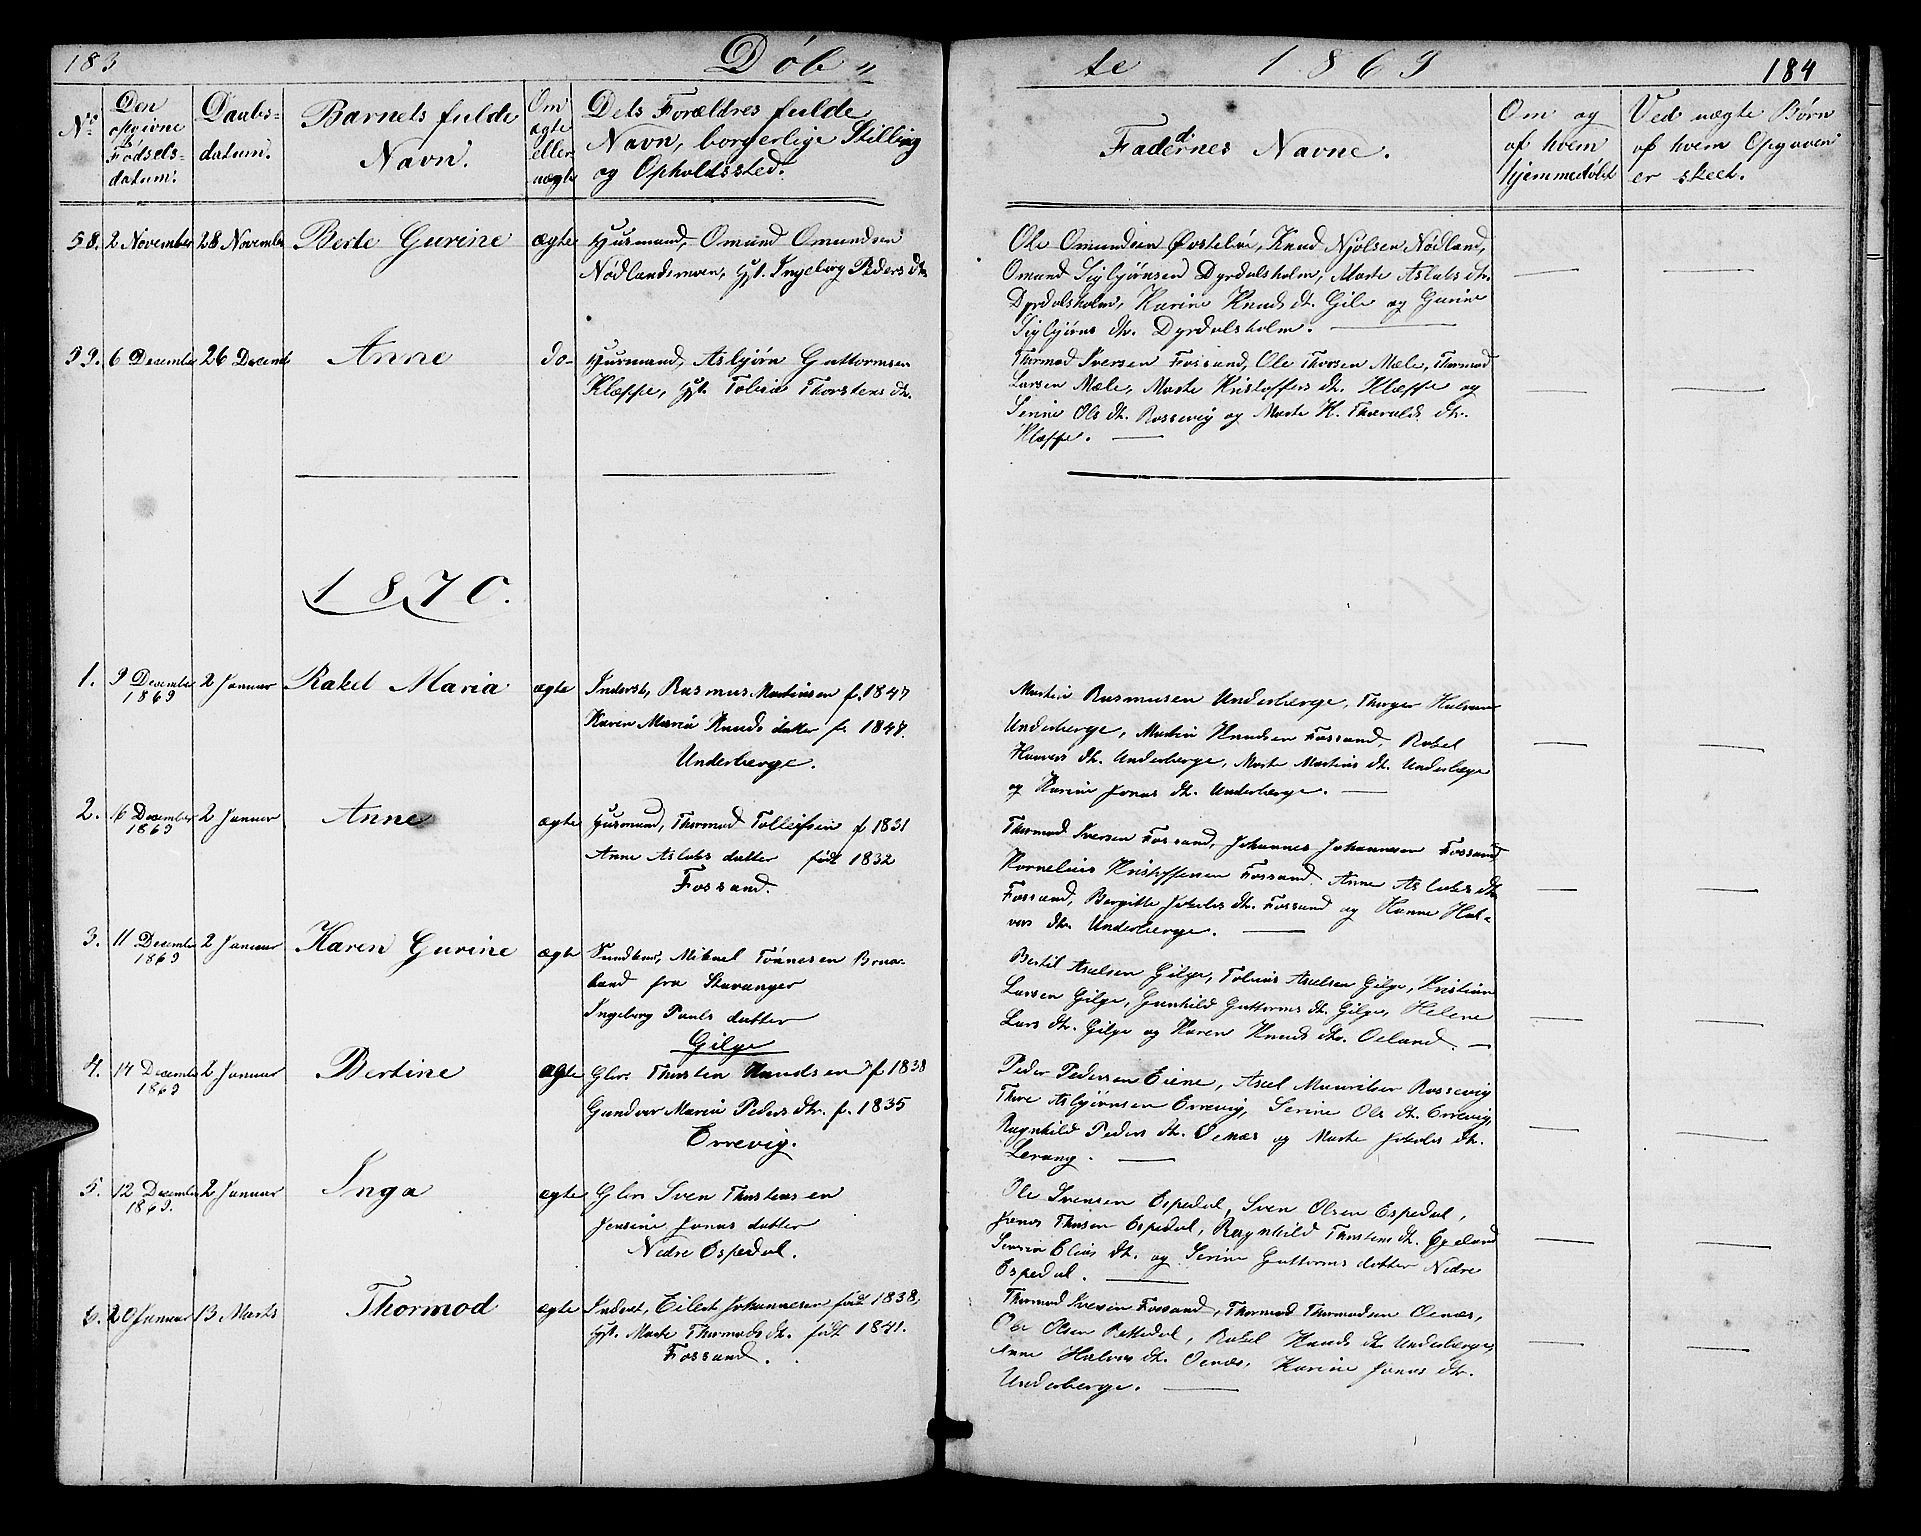 183
Døb„
te 1869
184
No.
Den opgivne Fødsels-datum.
Daabs-datum.
Barnets fulde Navn.
Om ægte eller uægte
Dets Forældres fulde Navn, borgerlige Stilling og Opholdssted.
Faddernes Navne.
Om og af hvem hjemmedøbt
Ved uægte Børn af hvem Opgaven er skeet.
58. 2 November 28 November Berte Gurine ægte Husmand, Omund Omundsen
Nødlandsmoen, Hst. Ingeborg Peders dtr.
Ole Omundsen Østebøe, Knud Njølsen Nødland,
Omund Sigbjørnsen Dyrdalsholm, Marte Aslaks dtr.
Dyrdalsholm, Karine Knuds dtr. Gilje og Gurine
Sigbjørns dtr. Dyrdalsholm. —
59. 6 December 26 Decemb Anne do- Husmand, Asbjørn Guttormsen
Kleppe, Hst. Tobia Thorstens dtr.
Thormod Iversen Fossand, Ole Thorsen Mæle, Thormod
Larsen Mæle, Marte Kristoffers dtr. Kleppe og
Serine Ols dtr. Rossevig og Marte K. Thoralds dtr.
Kleppe. —
1870.
1. 9 December 1869 2 Januar Rakel Maria ægte Inderst, Rasmus Martinsen f. 1847
Karen Maria Knuds datter f. 1847.
Underberge.
Martin Rasmusen Underberge, Thorger Halvorsen
Underberge, Martin Knudsen Fossand, Rakel
Havors dtr. Underberge, Marte Martins dtr. Underberge
og Karine Jonas dtr. Underberge. —
2. 16 December 1869 2 Januar Anne ægte Husmand, Thormod Tolleifsen f 1831
Anne Aslaks datter født 1832
Fossand.
Thormod Iversen Fossand, Johannes Johannesen Fossand
Kornelius Kristoffersen Fossand, Anne Aslaks dtr
Fossand, Bergitte Jakobs dtr. Fossand og Hanne Hal-
vors dtr. Underberge. —
3. 11 December 1869 2 Januar Karen Gurine ægte Mikael Tønnesen
fra Stavanger
Ingeborg Pauls datter
Gilje
Bertil Axelsen Gilje, Tobias Axelsen Gilje, Kristian
Larsen Gilje, Gunhild Guttorms dtr. Gilje, Helene
Lars dtr. Gilje og Karen Knuds dtr. Oeland. —
4. 14 December 1869 2 Januar Bertine ægte Gbr. Thorsten Knudsen f 1838
Gundvor Maria Peders dtr. f. 1835
Errevig.
Peder Pedersen Eiene, Axel Mauritsen Rossevig
Thore Asbjørnsen Errevig, Serine Ols dtr. Errevig,
Ragnhild Peders dtr. Oenæs og Marte Jakobs dtr.
Lerang. —
5. 12 December 1869. 2 Januar Inga ægte Gbr. Sven Thorstensen
Jensine Jonas datter
Nedre Espedal.
Ole Svensen Espedal, Sven Olsen Espedal,
Jonas Thorsen Espedal, Ragnhild Thorstens dtr. Egeland
Severin Elias dtr. og Serine Guttorms datter Nedre
Espedal. —
6. 20 Januar 13 Marts Thormod ægte Inderst, Eilert Johannesen født 1838,
Hst. Marte Thormods dtr. født 1841.
Fossand.
Thormod Iversen Fossand, Thormod Thormodsen Oenæs,
Ole Olsen Rettedal, Rakel Knuds dtr Underberge,
Anne Halvors dtr. Oenæs, Karine Jonas dtr.
Underberge. —